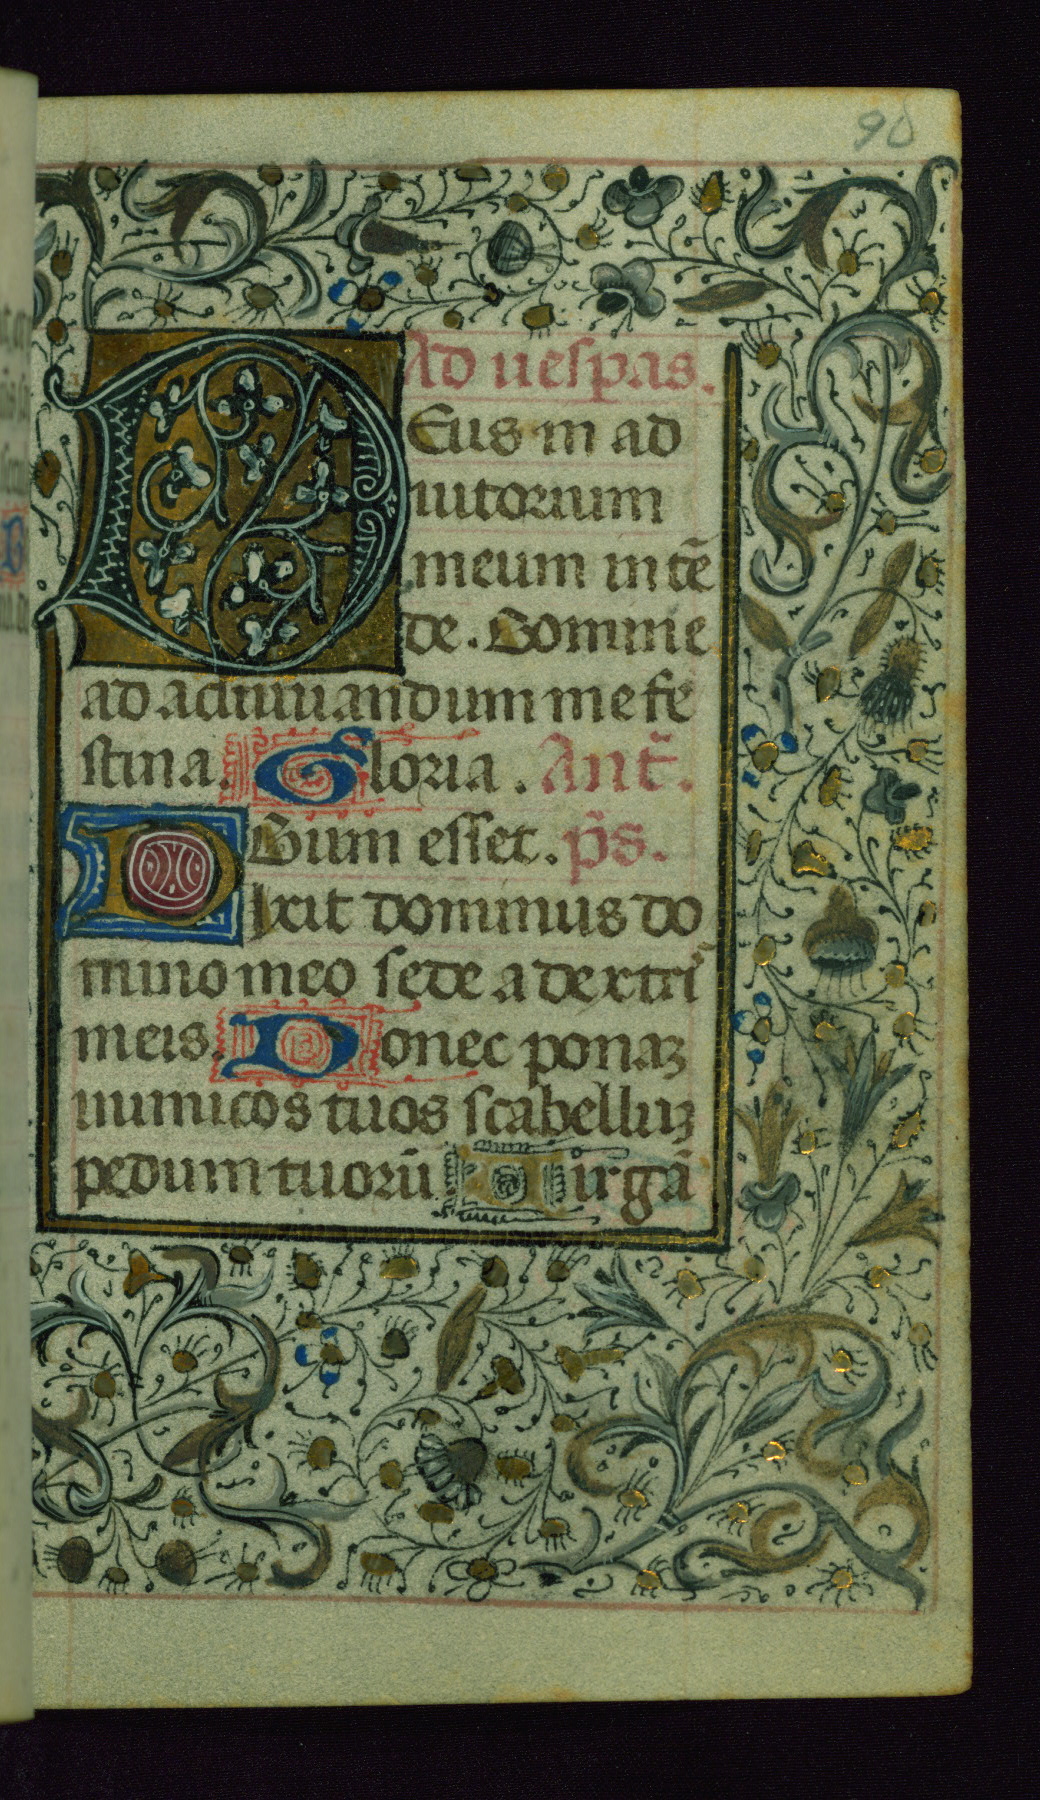 90
Ad uespas.
DEus in ad
iutorium
meum intē
de. Domine
ad adiuuandum me fe
stina. Gloria. Anť.
Dum esset. p̄s.
Dixit dominus do
mino meo sede a dextri
meis. Donec ponaꝫ
inimicos tuos scabelluꝫ
pedum tuorū Uirgā